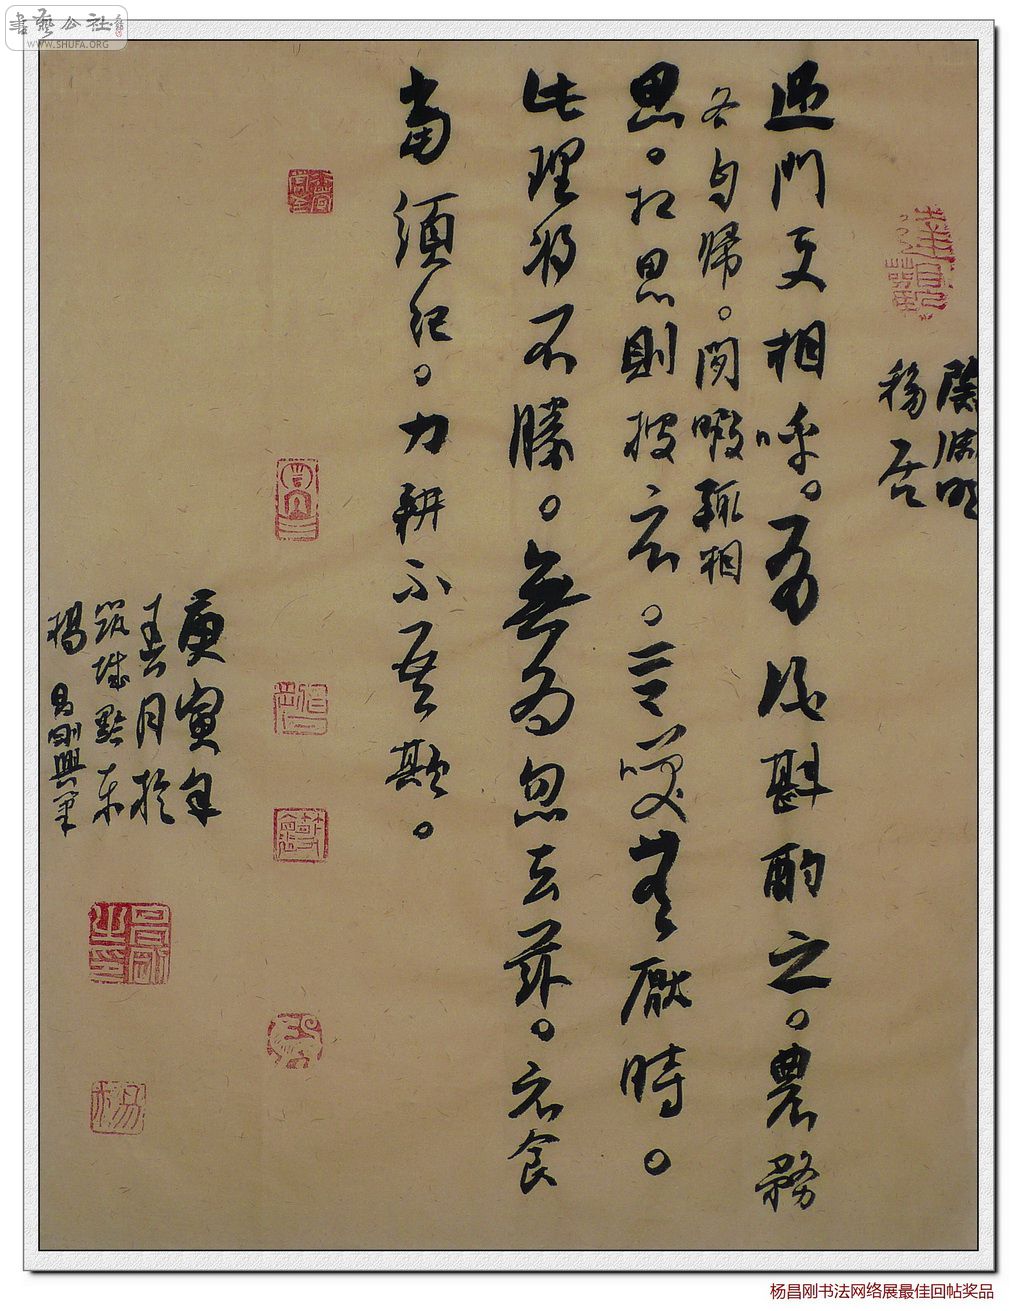 書藝公社
WWW.SHUFA.ORG
陶淵明
移居
過門更相呼。有酒斟酌之。農務
各自歸。閒暇輒相
思。相思則披衣。言笑無厭時。
此理將不勝。無為忽去茲。衣食
當須紀。力耕不吾欺。
庚寅年
春月於
筑城黔東
楊昌剛興筆
杨昌刚书法网络展最佳回帖奖品